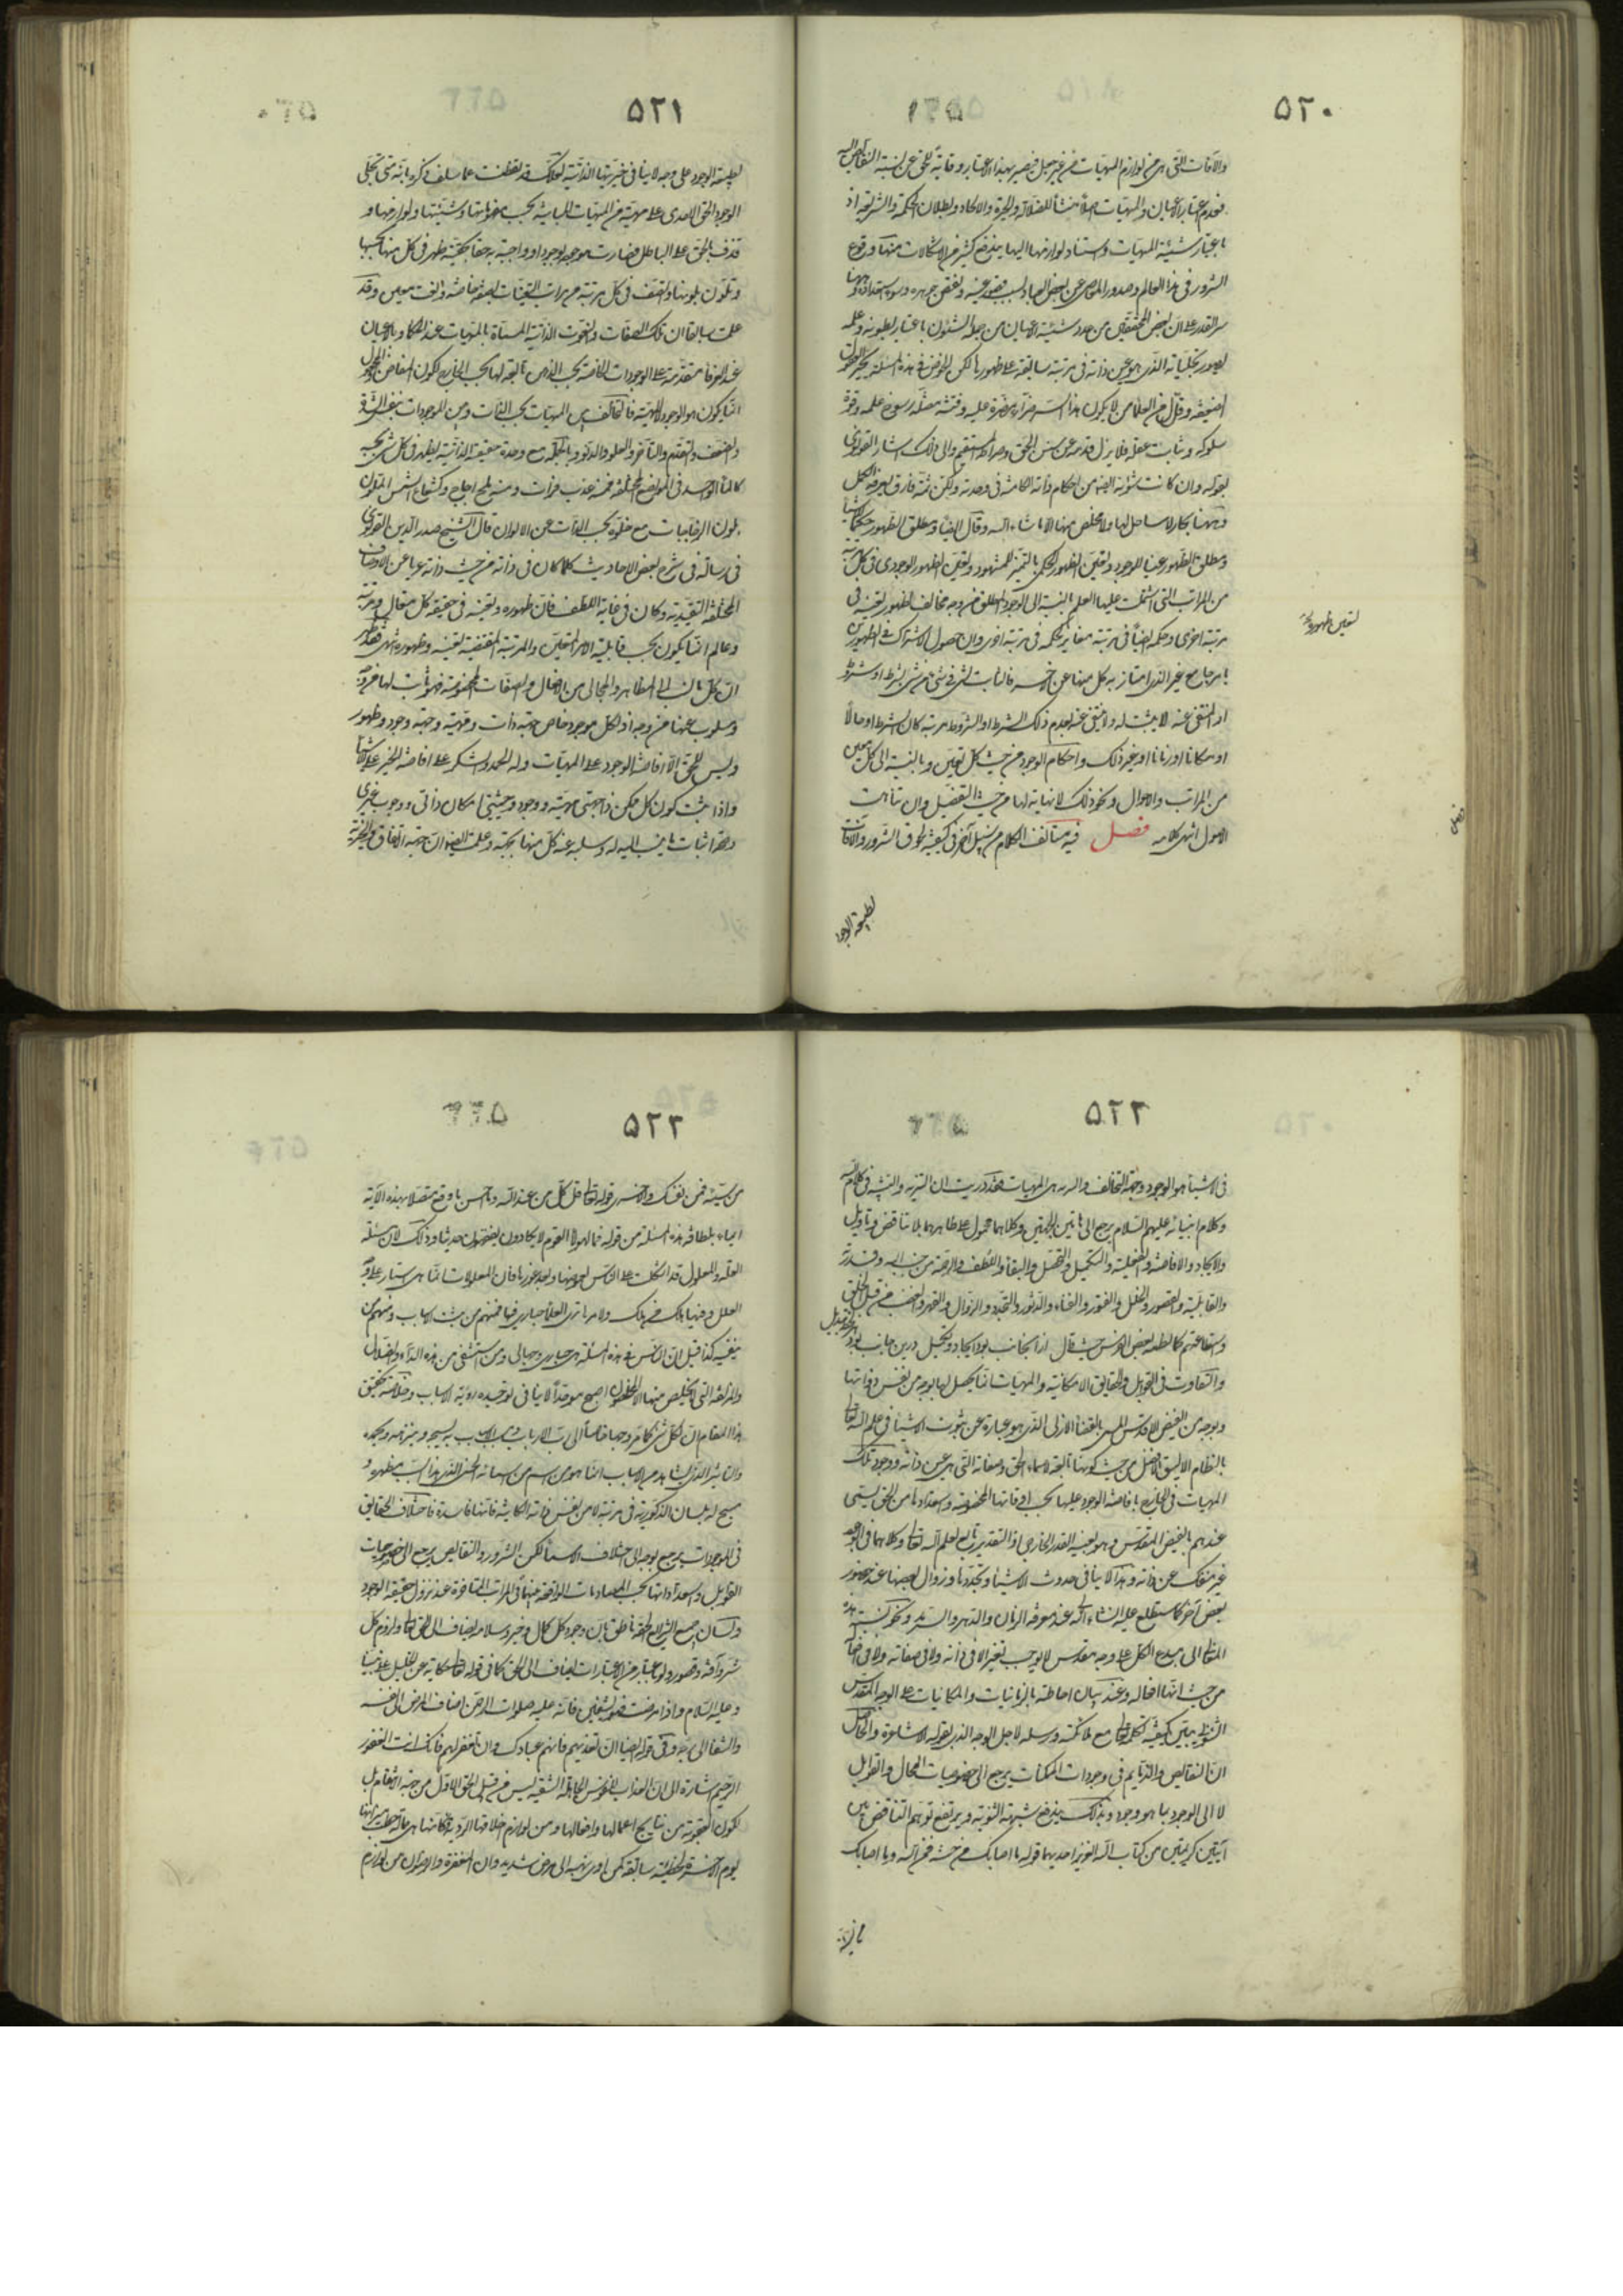 ٥٢٠
والآفات التي هي من لوازم المهيات من غير جعل فيصير بهذا الاعتبار وقاية للحق عن نسبة النقايص اليه
فعدم اعتبار الاعيان والمهيات اصلا منشأ للضلالة والحيرة والالحاد وبطلان الحكمة والشريعة اذ
باعتبار شيئية المهيات واستناد لوازمها اليها يندفع كثير من الاشكالات منها وقوع
الشرور في هذا العالم وصدور المعاصي عن بعض العباد بسبب قصور عينه ونقص جوهره وسوء استعداده وهنا
سر القدر على ان بعض المحققين من عد شيئية الاعيان من جملة الشئون باعتبار بطونه وعلمه
بصور تجلياته الذي هو عين ذاته في مرتبة سابقة على ظهورها لكن الخوض في هذه المسئلة يحير العقول
الضعيفة وقل من العلماء من لا يكون هذا السر ضرارا مضرة عليه وفتنة مضلة لرسوخ علمه وقوة
سلوكه وثبات عقله فلا يزل قدمه عن سنن الحق وصراطه المستقيم والى ذلك اشار القونوي
بقوله وان كانت شئونه ايضا من احكام ذاته الكامنة في وحدته ولكن ثمة فارق يعرفه الكمل
وههنا بحار لا ساحل لها ولا مخلص منها الا لمن شاء الله وقال ايضا ومطلق الظهور حكما للاشياء
ومطلق الظهور عينا للوجود وتعين الظهور الحكمي بالتميز المشهود وتعين الظهور الوجودي في كل مرتبة
من المراتب التي اشتملت عليها العلم بالنسبة الى الوجود المطلق من وجه مخالف لظهور تعينه في
مرتبة اخرى وحكمه ايضا في مرتبة مغاير لحكمه في مرتبة اخرى وان حصل الاشتراك في الظهورين
بامر جامع غير الذي امتاز به كل منها عن الآخر فالثابت لشيء في شيء من شيء بشرط او شروط
او المنتفى عنه لا يثبت له ولا ينتفي عنه بعدم ذلك الشرط او الشروط مرتبة كان الشرط او حالا
او مكانا او زمانا او غير ذلك واحكام الوجود من حيث كل تعين وبالنسبة الى كل معين
من المراتب والاحوال ونحو ذلك لا نهاية لها من حيث التفصيل وان تناهت
الاصول انتهى كلامه فصل فيه يستأنف الكلام من سبيل آخر في كيفية لحوق الشرور والآفات
لطبيعة الوجود
٥٢١
لطبيعة الوجود على وجه لا ينافي خيريتها الذاتية لعلك قد تفطنت مما سلف ذكره بانه متى تجلى
الوجود الحق الاحدي على مهية من المهيات المباينة بحسب مفهومها وشيئيتها ولوازمها و
قذف بالحق على الباطل فصارت موجودة بوجوده او واجبة به حقا بحقيته ظهر في كل منها بحسبها
وتلون بلونها واتصف في كل مرتبة من مراتب التعينات بصفة خاصة ونعت معين وقد
علمت سابقا ان تلك الصفات والنعوت الذاتية المسماة بالمهيات عند الحكماء وبالاعيان
عند العرفاء متقدمة على الوجودات الخاصة بحسب الذهن تابعة لها بحسب الخارج لكون المفاض والمجعول
انما يكون هو الوجود لا المهية فالتخالف بين المهيات بحسب الذات وبين الوجودات بنفس الشدة
والضعف والتقدم والتأخر والعلو والدنو وبالجملة مع وحدة حقيقته الذاتية يظهر في كل شيء بحسبه
كالماء الواحد في المواضع المختلفة فمنه عذب فرات ومنه ملح اجاج وكشعاع الشمس الملون
بلون الزجاجات مع خلوه بحسب الذات عن الالوان قال الشيخ صدر الدين القونوي
في رسالة في شرح بعض الاحاديث كلما كان في ذاته من حيث ذاته عريا عن الاوصاف
المختلفة التقيدية وكان في غاية اللطف فان ظهوره وتعينه في حقيقة كل متعين ومرتبة
وعالم انما يكون بحسب قابلية الامر المتعين والمرتبة المقتضية تعينه وظهوره انتهى فقد ظهر
ان كل ما نسب الى المظاهر والمجالي من الافعال والصفات المخصوصة فهو ثابت لها من وجه
ومسلوب عنها من وجه اذ لكل موجود خاص جهة ذات ومهية وجهة وجود وظهور
وليس للحق الا افاضة الوجود على المهيات وله الحمد والشكر على افاضة الخير على الاشياء
واذا ثبت كون كل ممكن ذا جهتي مهية ووجود وحيثيتي امكان ذاتي ووجوب غيري
وصحة اثبات ما ينسب اليه له وسلبه عنه كل منها بجهة وعلمت ايضا ان جهة الاتفاق والخيرية
٥٢٢
في الاشياء هو الوجود وجهة التخالف والشرية هي المهيات فقد دريت ان التنزيه والتشبيه في كلام الله
وكلام انبيائه عليهم السلام يرجع الى هاتين الجهتين وكلاهما محمول على ظاهرهما بلا تناقض وتأويل
والايجاد والافاضة والفعلية والتكميل والتحصيل والبقاء واللطف والرحمة من جانب الله وقدرته
والقابلية والقصور والخلل والفتور والفناء والدثور والتجدد والزوال والقهر والغضب من قبل الخلق
واستطاعتهم كما نظمه بعض الفرس حيث قال ازان جانب بود ايجاد وتكميل درين جانب بود هر لحظه تبديل
والتفاوت في القوابل والحقايق الامكانية والمهيات انما يحصل لها بوجه من نفس ذواتها
وبوجه من الفيض الاقدس المسمى بالقضاء الازلي الذي هو عبارة عن ثبوت الاشياء في علم الله تعالى
بالنظام الاليق الافضل من حيث كونها تابعة لاسماء الحق وصفاته التي هي عين ذاته ووجود تلك
المهيات في الخارج بافاضة الوجود عليها بحسب اوقاتها المخصوصة واستعداداتها من الحق يسمى
عندهم بالفيض المقدس وهو بعينه القدر الخارجي اذ التقدير تابع لعلم الله تعالى وكلاهما في الوجود
غير منفك عن ذاته وهذا لا ينافي حدوث الاشياء وتجددها وزوال بعضها عند حضور
بعض آخر كما ستطلع عليه ان شاء الله عند معرفة الزمان والدهر والسرمد ونحو نسبة هذه
المعاني الى مبدع الكل على وجه مقدس لا يوجب تغيرا لا في ذاته ولا في صفاته ولا في افعاله
من حيث انها افعاله وعند بيان احاطته بالزمانيات والمكانيات على الوجه المقدس
الشمولي يتبين كيفية تكلمه تعالى مع ملائكته ورسله لا على الوجه الذي يقوله الاشاعرة والحاصل
ان النقايص والذمايم في وجودات الممكنات يرجع الى خصوصيات المحال والقوابل
لا الى الوجود بما هو وجود وبذلك يندفع شبهة الثنوية ويرتفع توهم التناقض بين
آيتين كريمتين من كتاب الله العزيز احديهما قوله ما اصابك من حسنة فمن الله وما اصابك
من سيئة
٥٢٣
من سيئة فمن نفسك والاخرى قوله تعالى قل كل من عند الله وما احسن ما وقع متصلا بهذه الآية
ايماء بلطافة هذه المسئلة من قوله فما لهؤلاء القوم لا يكادون يفقهون حديثا وذلك لان مسئلة
العلة والمعلول قد اشكلت على الناس لغموضها وبعد غورها فان المعلولات انما هي استار على وجه
العلل وفيها هلك من هلك والامر ما ترى العلماء حيارى فيها فمنهم من يثبت الاسباب ومنهم من
ينفيه كذا قيل ان الناس في هذه المسئلة بين حيارى وجهال ومن استشفى من هذه الداء والضلال
والمزلقة التي لا يخلص منها الا المخلصون اصبح موحدا لا ينافي توحيده رؤية الاسباب وخلاصة تحقيق
هذا المقام ان لكل شيء كما مر وجها خاصا الى رب الارباب ومسبب الاسباب به يسبحه وينزهه ويحمده
والتأثير الذي يشاهد من الاسباب انما هو من اسم من اسمائه الحسنى الذي هذا السبب مظهره و
مسبح له بلسان الذاكرية في مرتبته لا من نفس ذاته الكائنة فانها فاسدة فاختلاف الحقايق
في الموجودات يرجع بوجه الى اختلاف الاسماء لكن الشرور والنقايص يرجع الى خصوصيات
القوابل واستعداداتها بحسب المصادمات الواقعة بينها في المراتب المتأخرة عند نزول حقيقة الوجود
ولسان جميع الشرايع الحقة ناطق بان وجود كل كمال وخير وسلامة يضاف الى الحق تعالى ولزوم كل
شر وآفة وقصور ولو باعتبار من الاعتبارات يضاف الى الخلق كما في قوله تعالى حكاية عن الخليل على نبينا
وعليه السلام واذا مرضت فهو يشفين فانه عليه صلوات الرحمن اضاف المرض الى نفسه
والشفاء الى ربه وفي قوله ايضا ان تعذبهم فانهم عبادك وان تغفر لهم فانك انت الغفور
الرحيم اشارة الى ان العذاب للنفوس الجاهلة الشقية ليس من قبل الحق الاول من جهة انتقام بل
لكون العقوبة من نتايج اعمالها وافعالها ومن لوازم اخلاقها الردية فكانها هي حمالة حطب نيرانها
يوم الآخرة لخطيئة سابقة كمن ادى نهمه الى مرض شديد وان المغفرة والرضوان من لوازم